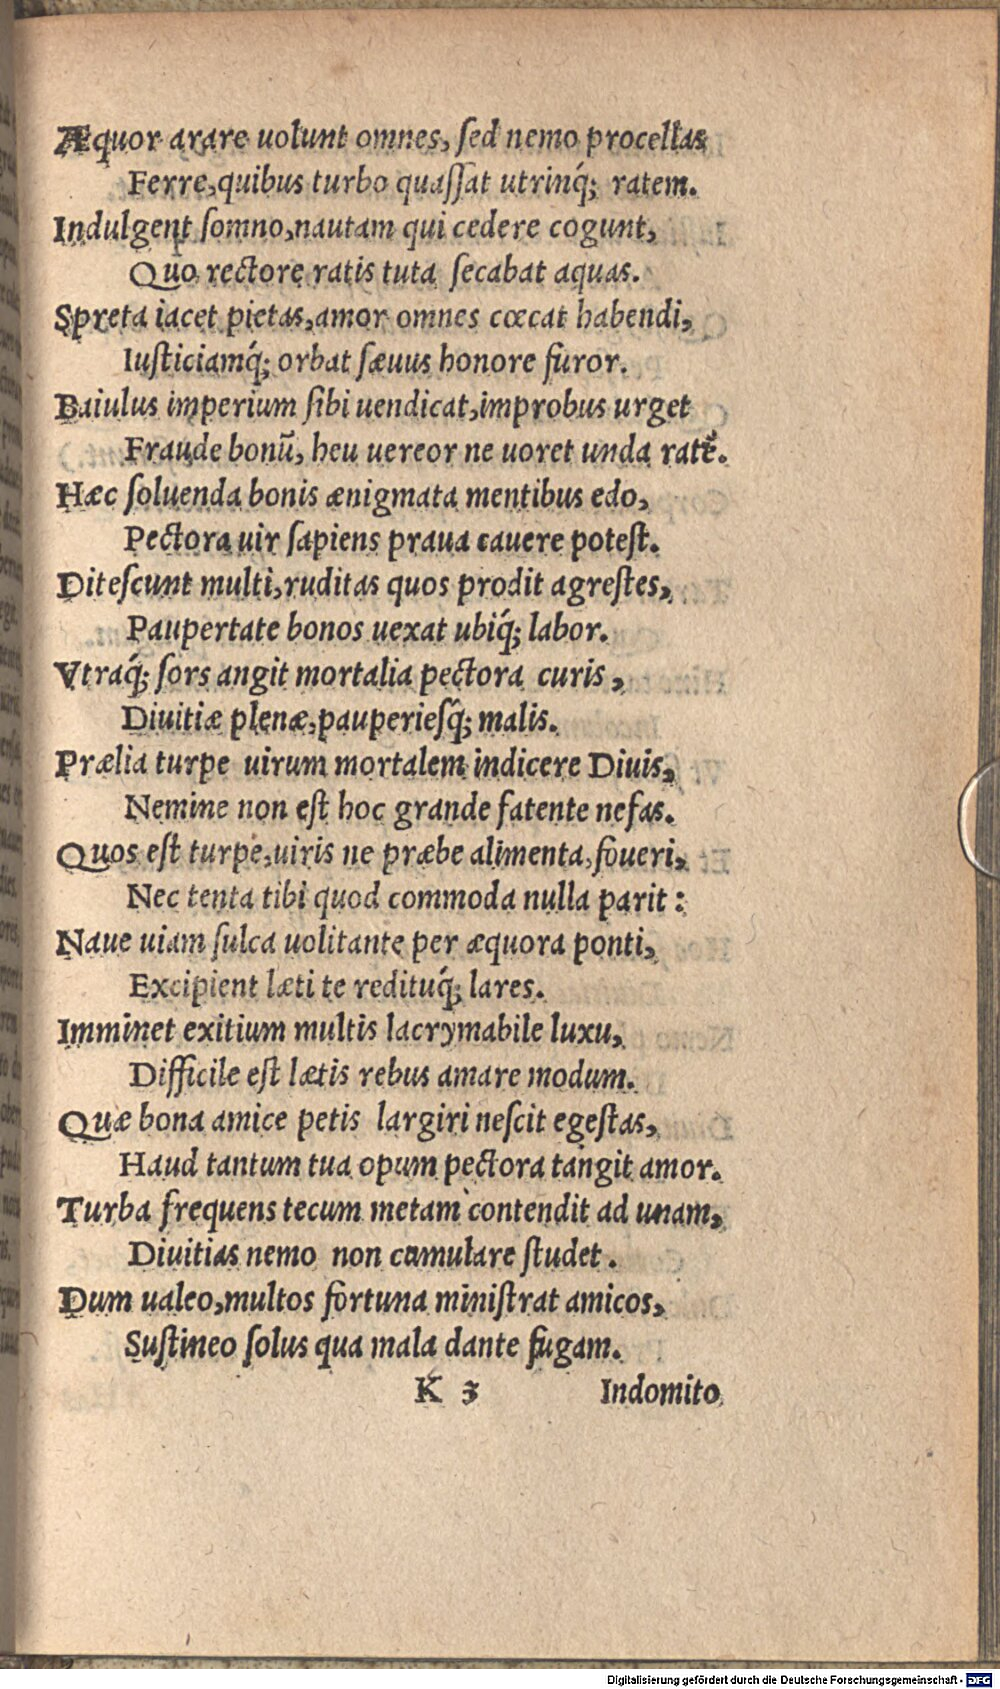 Æquor arare uolunt omnes, ſed nemo procellas
Ferre, quibus turbo quaſſat utrinq́; ratem.
Indulgent ſomno, nautam qui cedere cogunt,
Quo rectore ratis tuta ſecabat aquas.
Spreta iacet pietas, amor omnes cœcat habendi,
Iuſticiamq́; orbat ſæuus honore furor.
Baiulus imperium ſibi uendicat, improbus urget
Fraude bonũ, heu uereor ne uoret unda ratẽ.
Hæc ſoluenda bonis ænigmata mentibus edo,
Pectora uir ſapiens praua cauere poteſt.
Diteſcunt multi, ruditas quos prodit agreſtes,
Paupertate bonos uexat ubiq́; labor.
Vtraq́; ſors angit mortalia pectora curis,
Diuitiæ plenæ, pauperieſq́; malis.
Prælia turpe uirum mortalem indicere Diuis,
Nemine non eſt hoc grande fatente nefas.
Quos eſt turpe, uiris ne præbe alimenta, foueri,
Nec tenta tibi quod commoda nulla parit:
Naue uiam ſulca uolitante per æquora ponti,
Excipient læti te redituq́; lares.
Imminet exitium multis lacrymabile luxu,
Difficile eſt lætis rebus amare modum.
Quæ bona amice petis largiri neſcit egeſtas,
Haud tantum tua opum pectora tangit amor.
Turba frequens tecum metam contendit ad unam,
Diuitias nemo non cumulare ſtudet.
Dum ualeo, multos fortuna miniſtrat amicos,
Suſtineo ſolus qua mala dante fugam.
K 3 Indomito
Digitalisierung gefördert durch die Deutsche Forschungsgemeinschaft - DFG